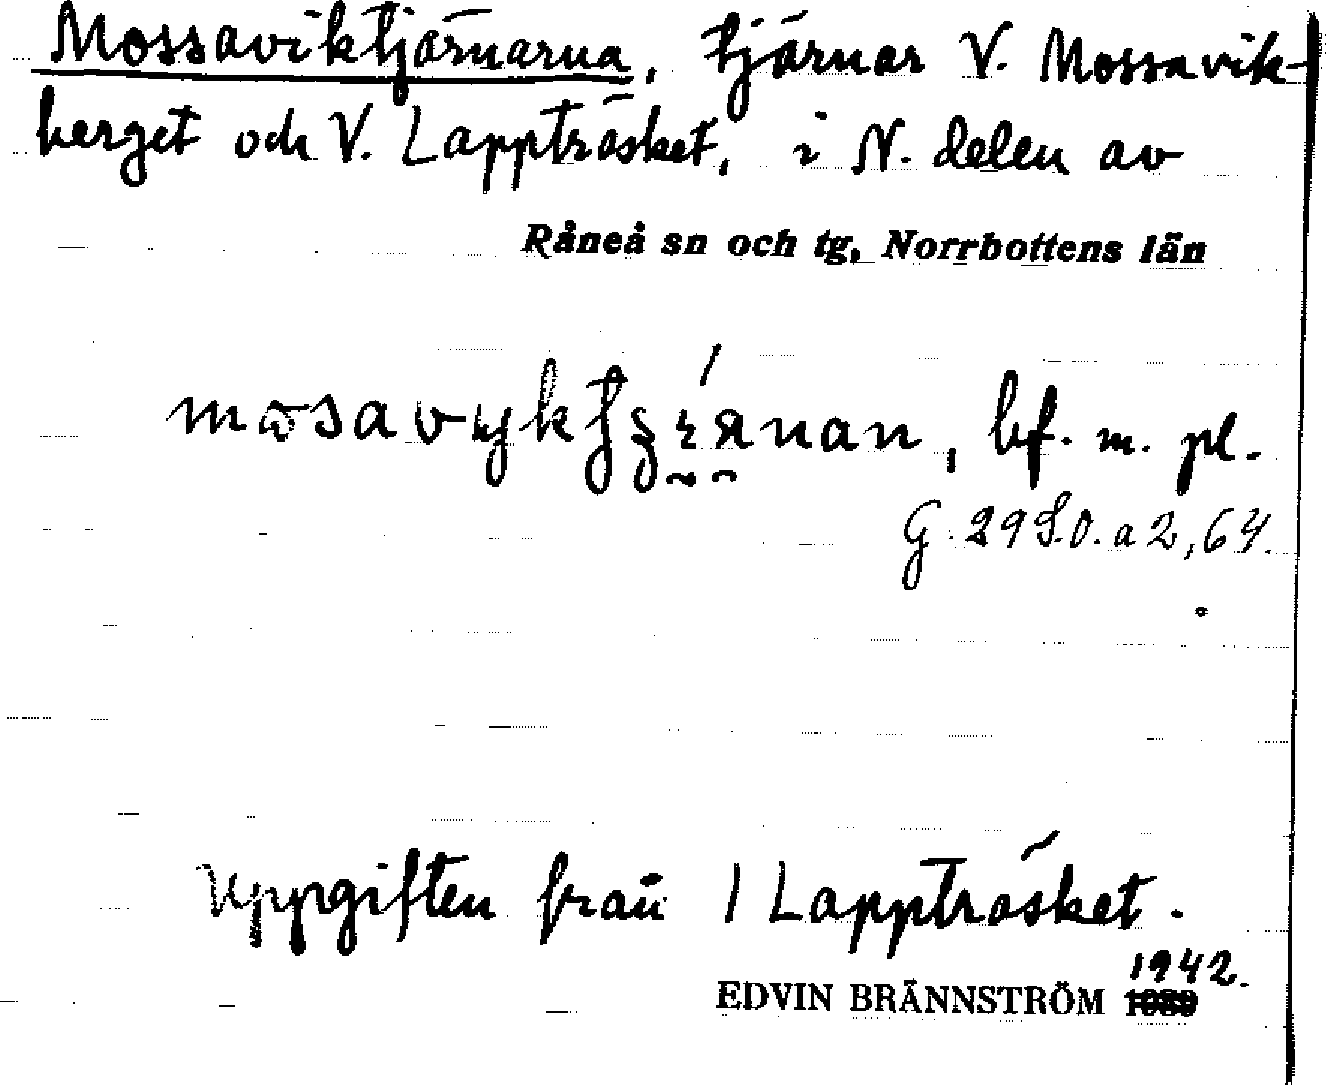 Mossaviktjärnarna, tjärnar V. Mossavik-
berget och V. Lappträsket, i N. delen av
Råneå sn och tg, Norrbottens län
bf. m. pl.
G. 29 S.O. a 2, 64.
Uppgiften från 1 Lappträsket.
1942.
EDVIN BRÄNNSTRÖM 1939